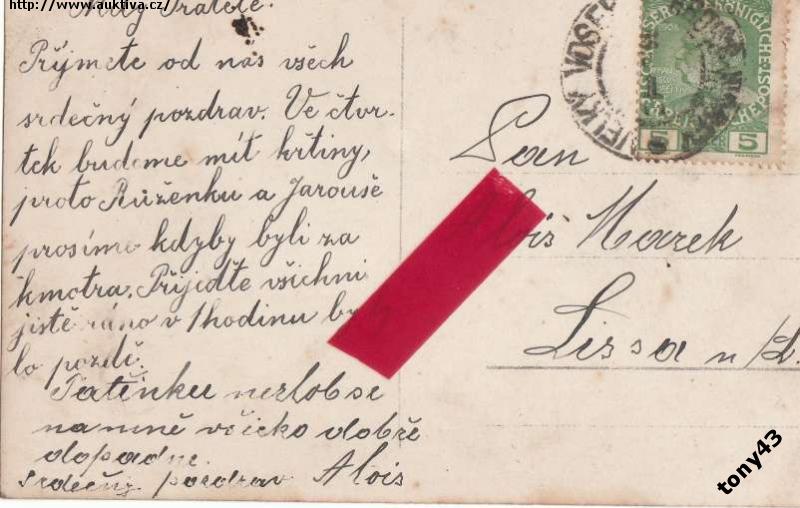 http://www.auktiva.cz/
Milý Bratře.
Přijmete od nás všech
srdečný pozdrav. Ve čtvr-
tek budeme mít křtiny,
proto Růženku a Jarouše
prosíme kdyby byli za
kmotra. Přijeďte všichni
jistě ráno v 1 hodinu by
lo pozdě.
Tatínku nezlob se
na mně všicko dobře
dopadne.
Srdečný pozdrav Alois
VELKÝ VOSEK
5 5
Pan
Alois Marek
Lissa n/L.
tony43